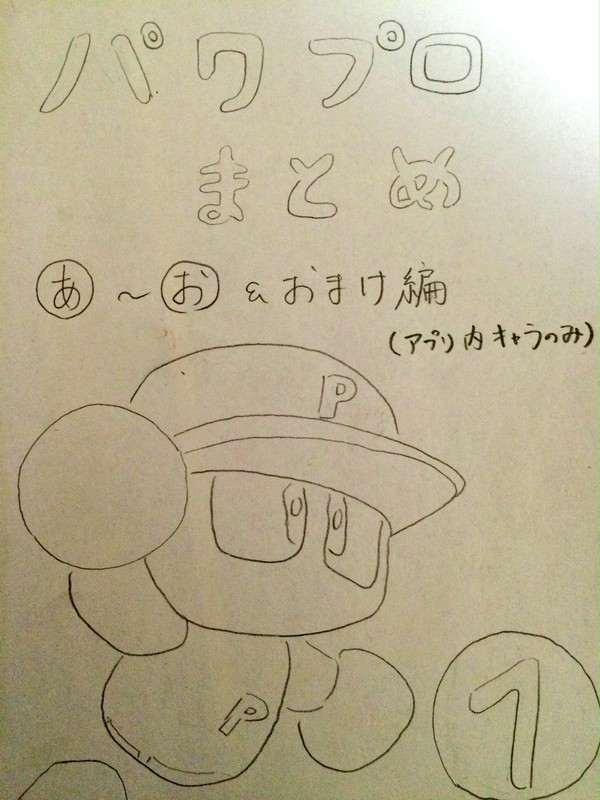 パワプロ
まとめ
あ～お&おまけ編
(アプリ内キャラのみ)
P
P
1